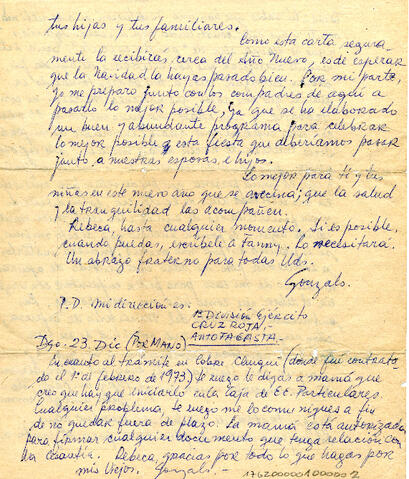 tus hijas y tus familiares.
Como esta carta segura-
mente la recibirás, cerca del Año Nuevo, es de esperar
que la Navidad la hayas pasado bien. Por mi parte,
yo me preparo junto con los compadres de aquí a
pasarlo lo mejor posible, ya que se ha elaborado
un buen y abundante programa para celebrar
lo mejor posible esta fiesta que deberíamos pasar
junto, a nuestras esposas e hijos.
Lo mejor para ti y tus
niñas en este nuevo año que se avecina; que la salud
y la tranquilidad las acompañen.
Rebeca, hasta cualquier momento. Si es posible,
cuando puedas, escríbele a Fanny. Lo necesitará.
Un abrazo fraterno para todas Uds.
Gonzalo.
P.D. Mi dirección es:
1ª DIVISIÓN EJÉRCITO
CRUZ ROJA.-
ANTOFAGASTA.-
Dgo. 23. Dic (POR MANO)
En cuanto al trámite en Cobre Chuqui (donde fui contrata-
do el 1º de febrero de 1973) te ruego le digas a mamá que
creo que hay que iniciarlo en la Caja de EE. Particulares.
Cualquier problema, te ruego me lo comuniques a fin
de no quedar fuera de plazo. La mamá está autorizada
para firmar cualquier documento que tenga relación con
la cesantía. Rebeca, gracias por todo lo que hagas por
mis viejos. Gonzalo.-